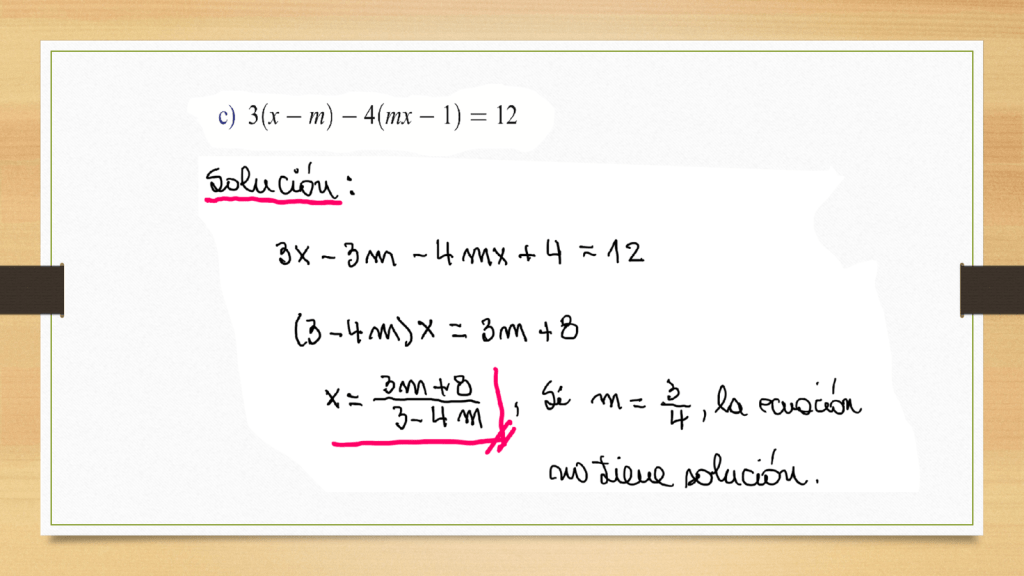 c) 3(x − m) − 4(mx − 1) = 12
Solución:
3x − 3m − 4mx + 4 = 12
(3 − 4m)x = 3m + 8
x = \frac{3m + 8}{3 − 4m}, Si m = \frac{3}{4}, la ecuación
no tiene solución.